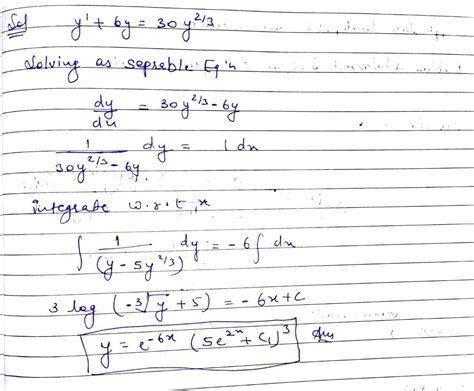 Sol y' + 6y = 30y^{2/3}
Solving as seprable Eq'n
dy/dx = 30y^{2/3} - 6y
1/(30y^{2/3} - 6y) dy = 1 dx
integrate w.r.t, x
∫ 1/(y - 5y^{2/3}) dy = -6 ∫ dx
3 log (-∛y + 5) = -6x + C
y = e^{-6x} (5e^{2x} + C₁)^3 Ans